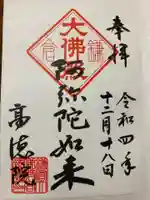 奉拝
令和四年
十二月十八日
大佛殿
鎌倉
阿弥陀如来
高徳院